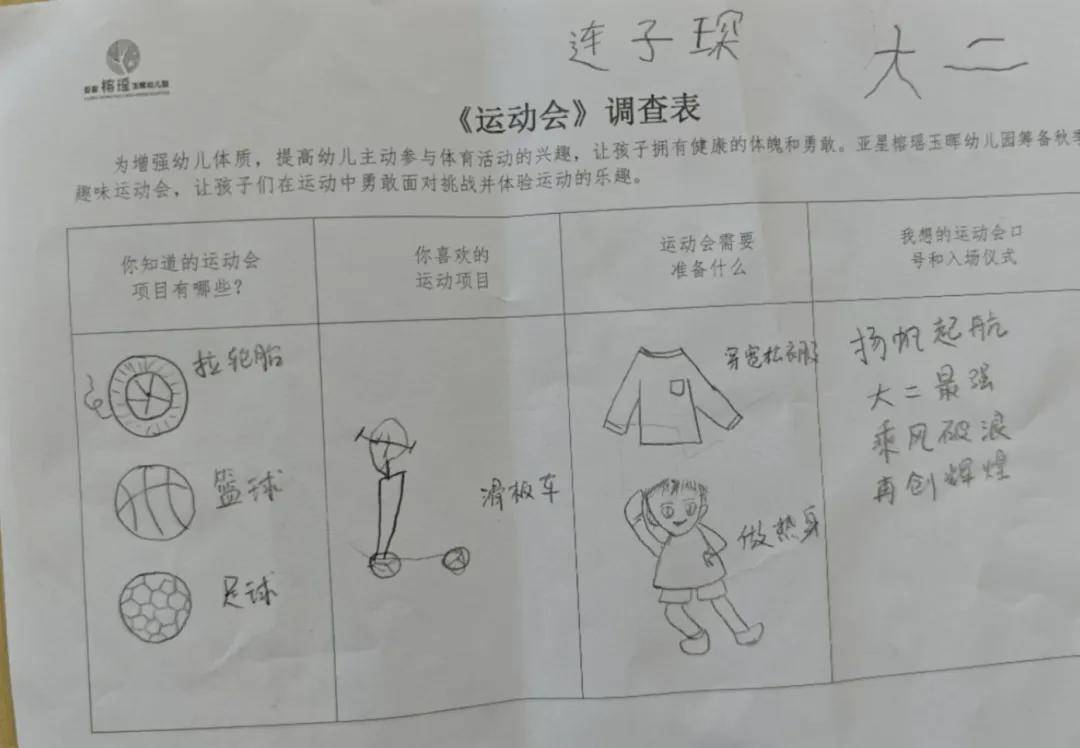 连子琛 大二
亚星 榕瑶 玉晖幼儿园
《运动会》调查表
为增强幼儿体质，提高幼儿主动参与体育活动的兴趣，让孩子拥有健康的体魄和勇敢。亚星榕瑶玉晖幼儿园筹备秋季
趣味运动会，让孩子们在运动中勇敢面对挑战并体验运动的乐趣。
你知道的运动会
项目有哪些？
你喜欢的
运动项目
运动会需要
准备什么
我想的运动会口
号和入场仪式
拉轮胎
篮球
足球
滑板车
穿宽松衣服
做热身
扬帆起航
大二最强
乘风破浪
再创辉煌